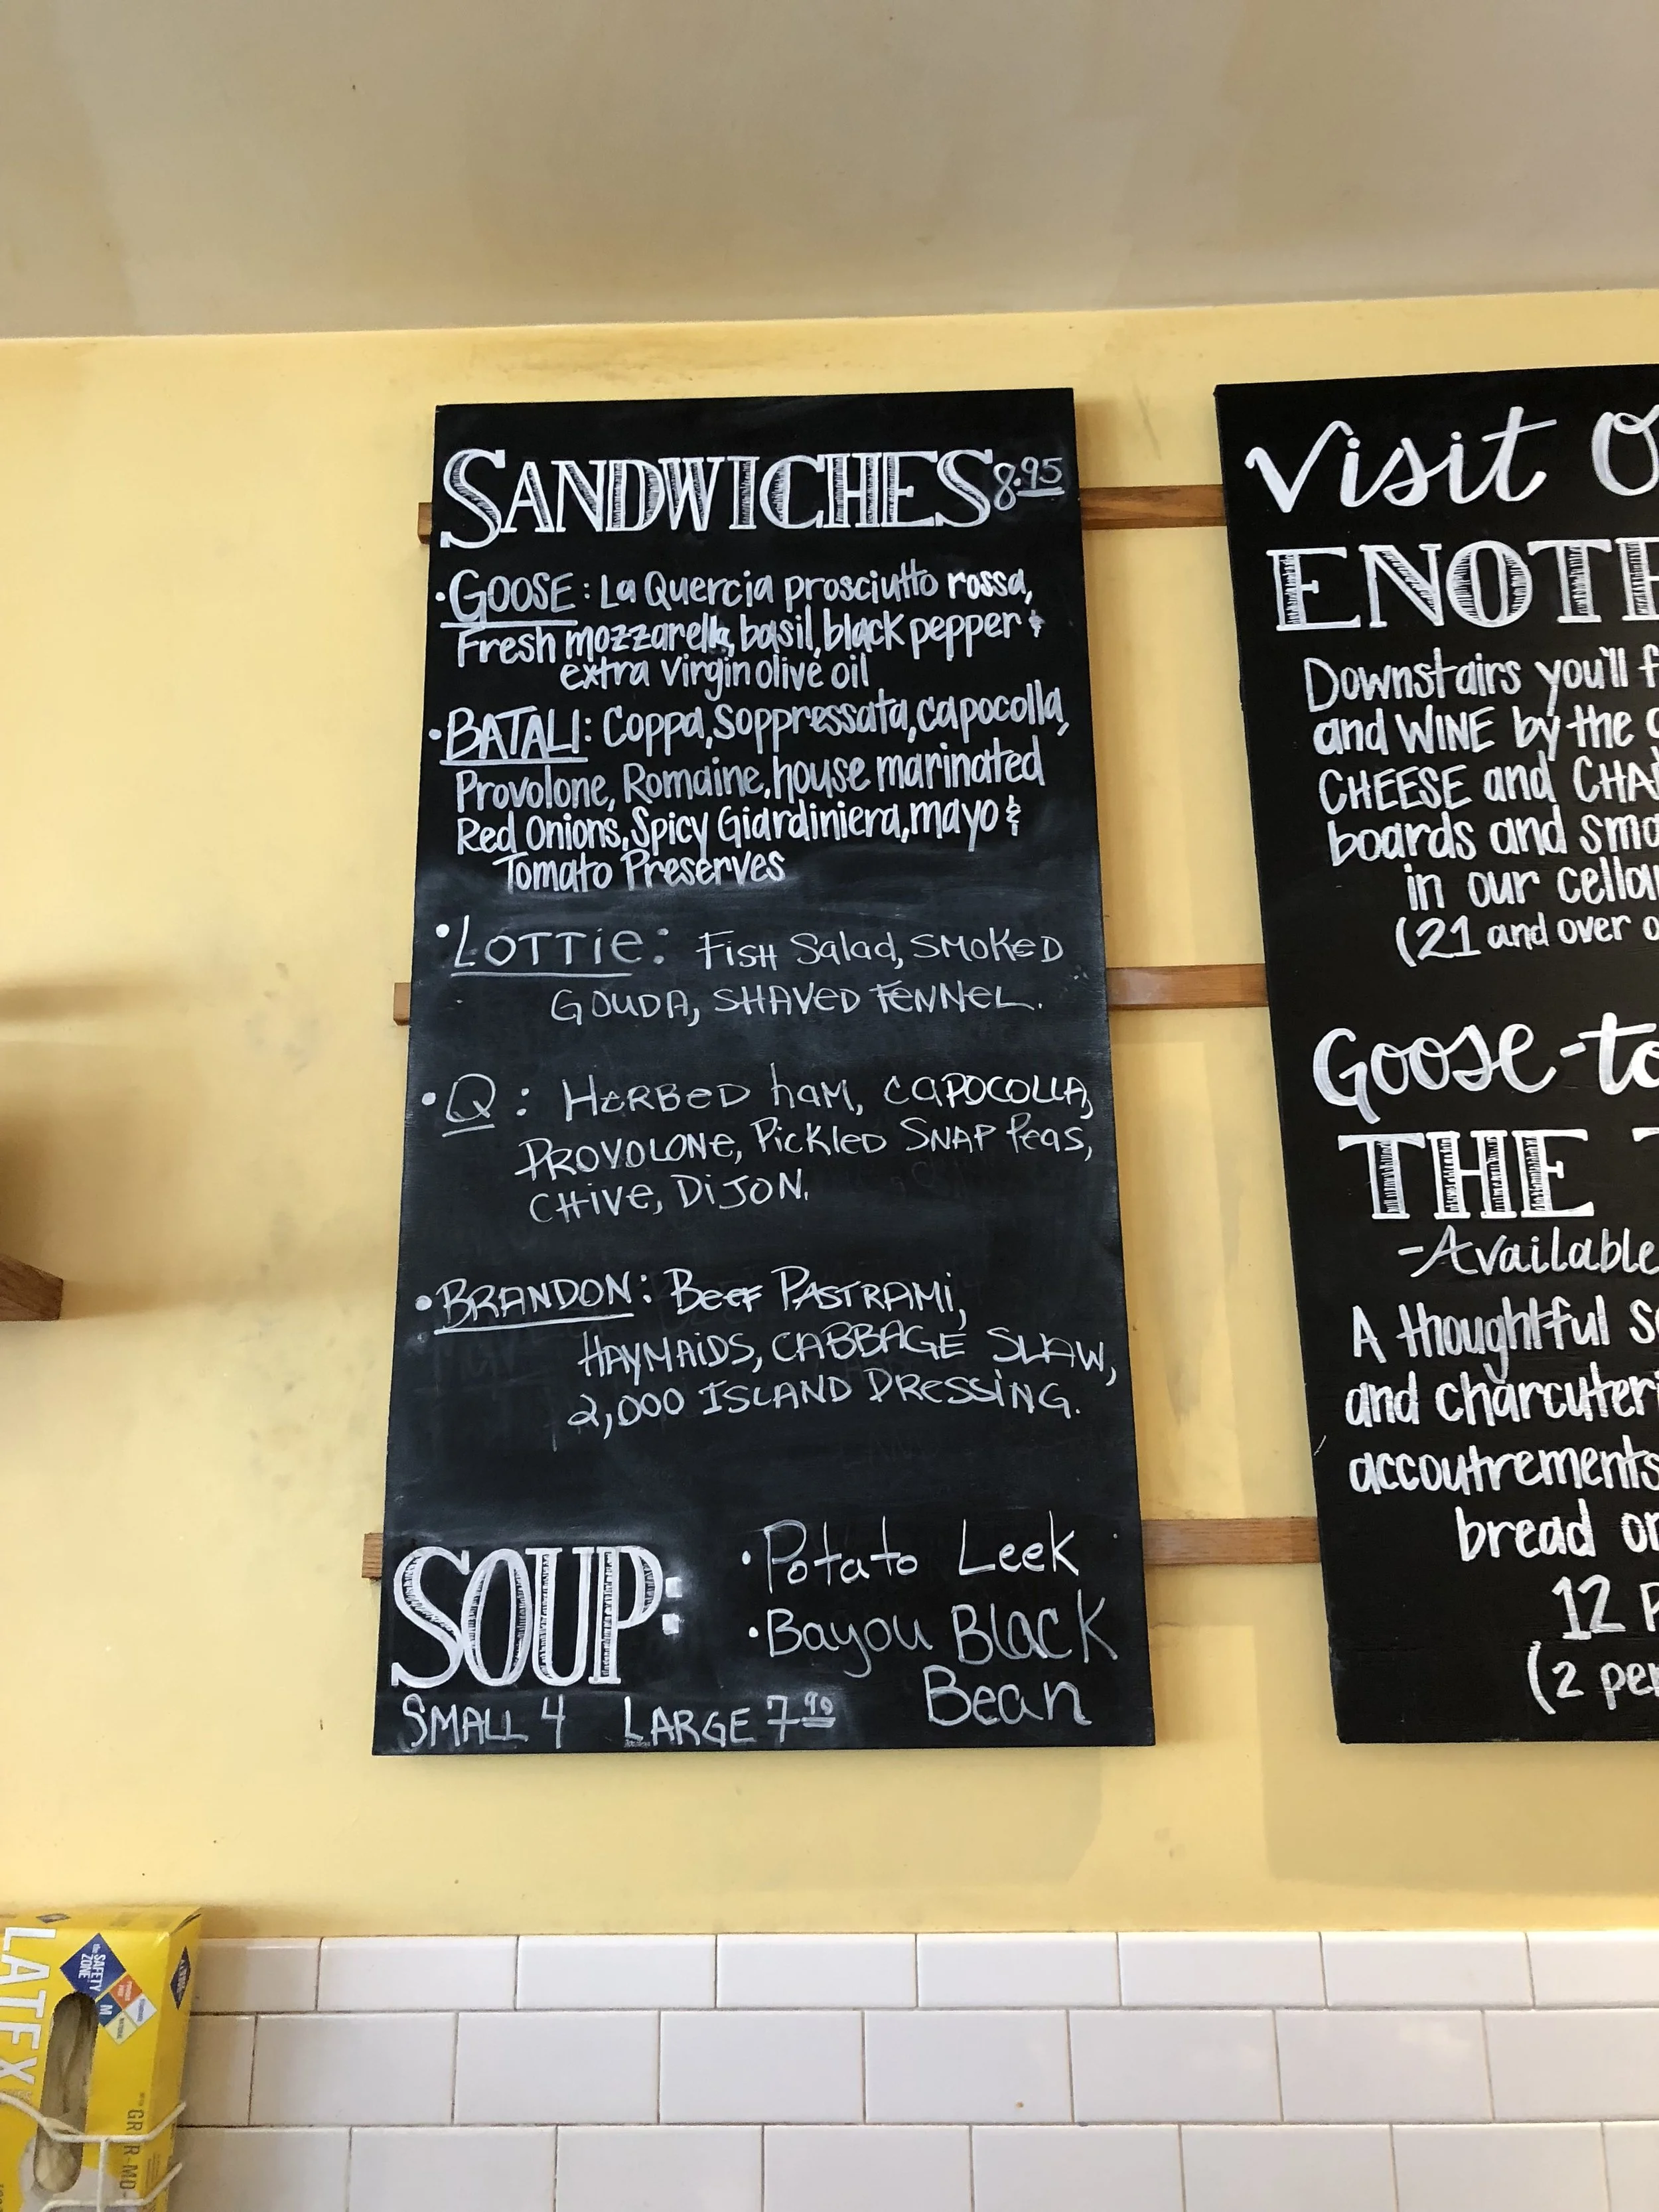 SANDWICHES 8.95
• GOOSE: La Quercia prosciutto rossa,
Fresh mozzarella, basil, black pepper &
extra virgin olive oil
• BATALI: Coppa, Soppressata, capocolla,
Provolone, Romaine, house marinated
Red Onions, Spicy Giardiniera, mayo &
Tomato Preserves
• LOTTie: FisH Salad, SMOKeD
GOUDA, SHAVeD FeNNeL.
• Q: HeRBeD haM, CaPOCOLLA,
PROVOLONe, PickleD SNAP Peas,
CHive, DiJON.
• BRANDON: Beef PASTRAMi,
HAYMAiDS, CABBAGE SLAW,
2,000 ISLAND DRessiNG.
SOUP:
• Potato Leek
• Bayou Black
Bean
SMALL 4 LARGE 7.90
Visit
Downstairs you'll
and WINE by the
CHEESE and
boards and
in our
(21 and over
Goose-to
THE
-Available
A thoughtful
and
accoutrements
bread
12
(2
LATEX
the SAFETY ZONE
M